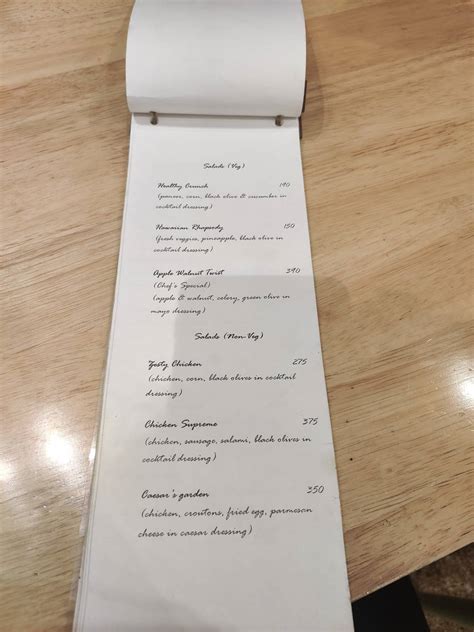 Salads (Veg)
Healthy Crunch 190
(paneer, corn, black olive & cucumber in
cocktail dressing)
Hawaiian Rhapsody 150
(fresh veggies, pineapple, black olive in
cocktail dressing)
Apple Walnut Twist 390
(Chef's Special)
(apple & walnut, celery, green olive in
mayo dressing)
Salads (Non-Veg)
Zesty Chicken 275
(chicken, corn, black olives in cocktail
dressing)
Chicken Supreme 375
(chicken, sausage, salami, black olives in
cocktail dressing)
Caesar's garden 350
(chicken, croutons, fried egg, parmesan
cheese in caesar dressing)